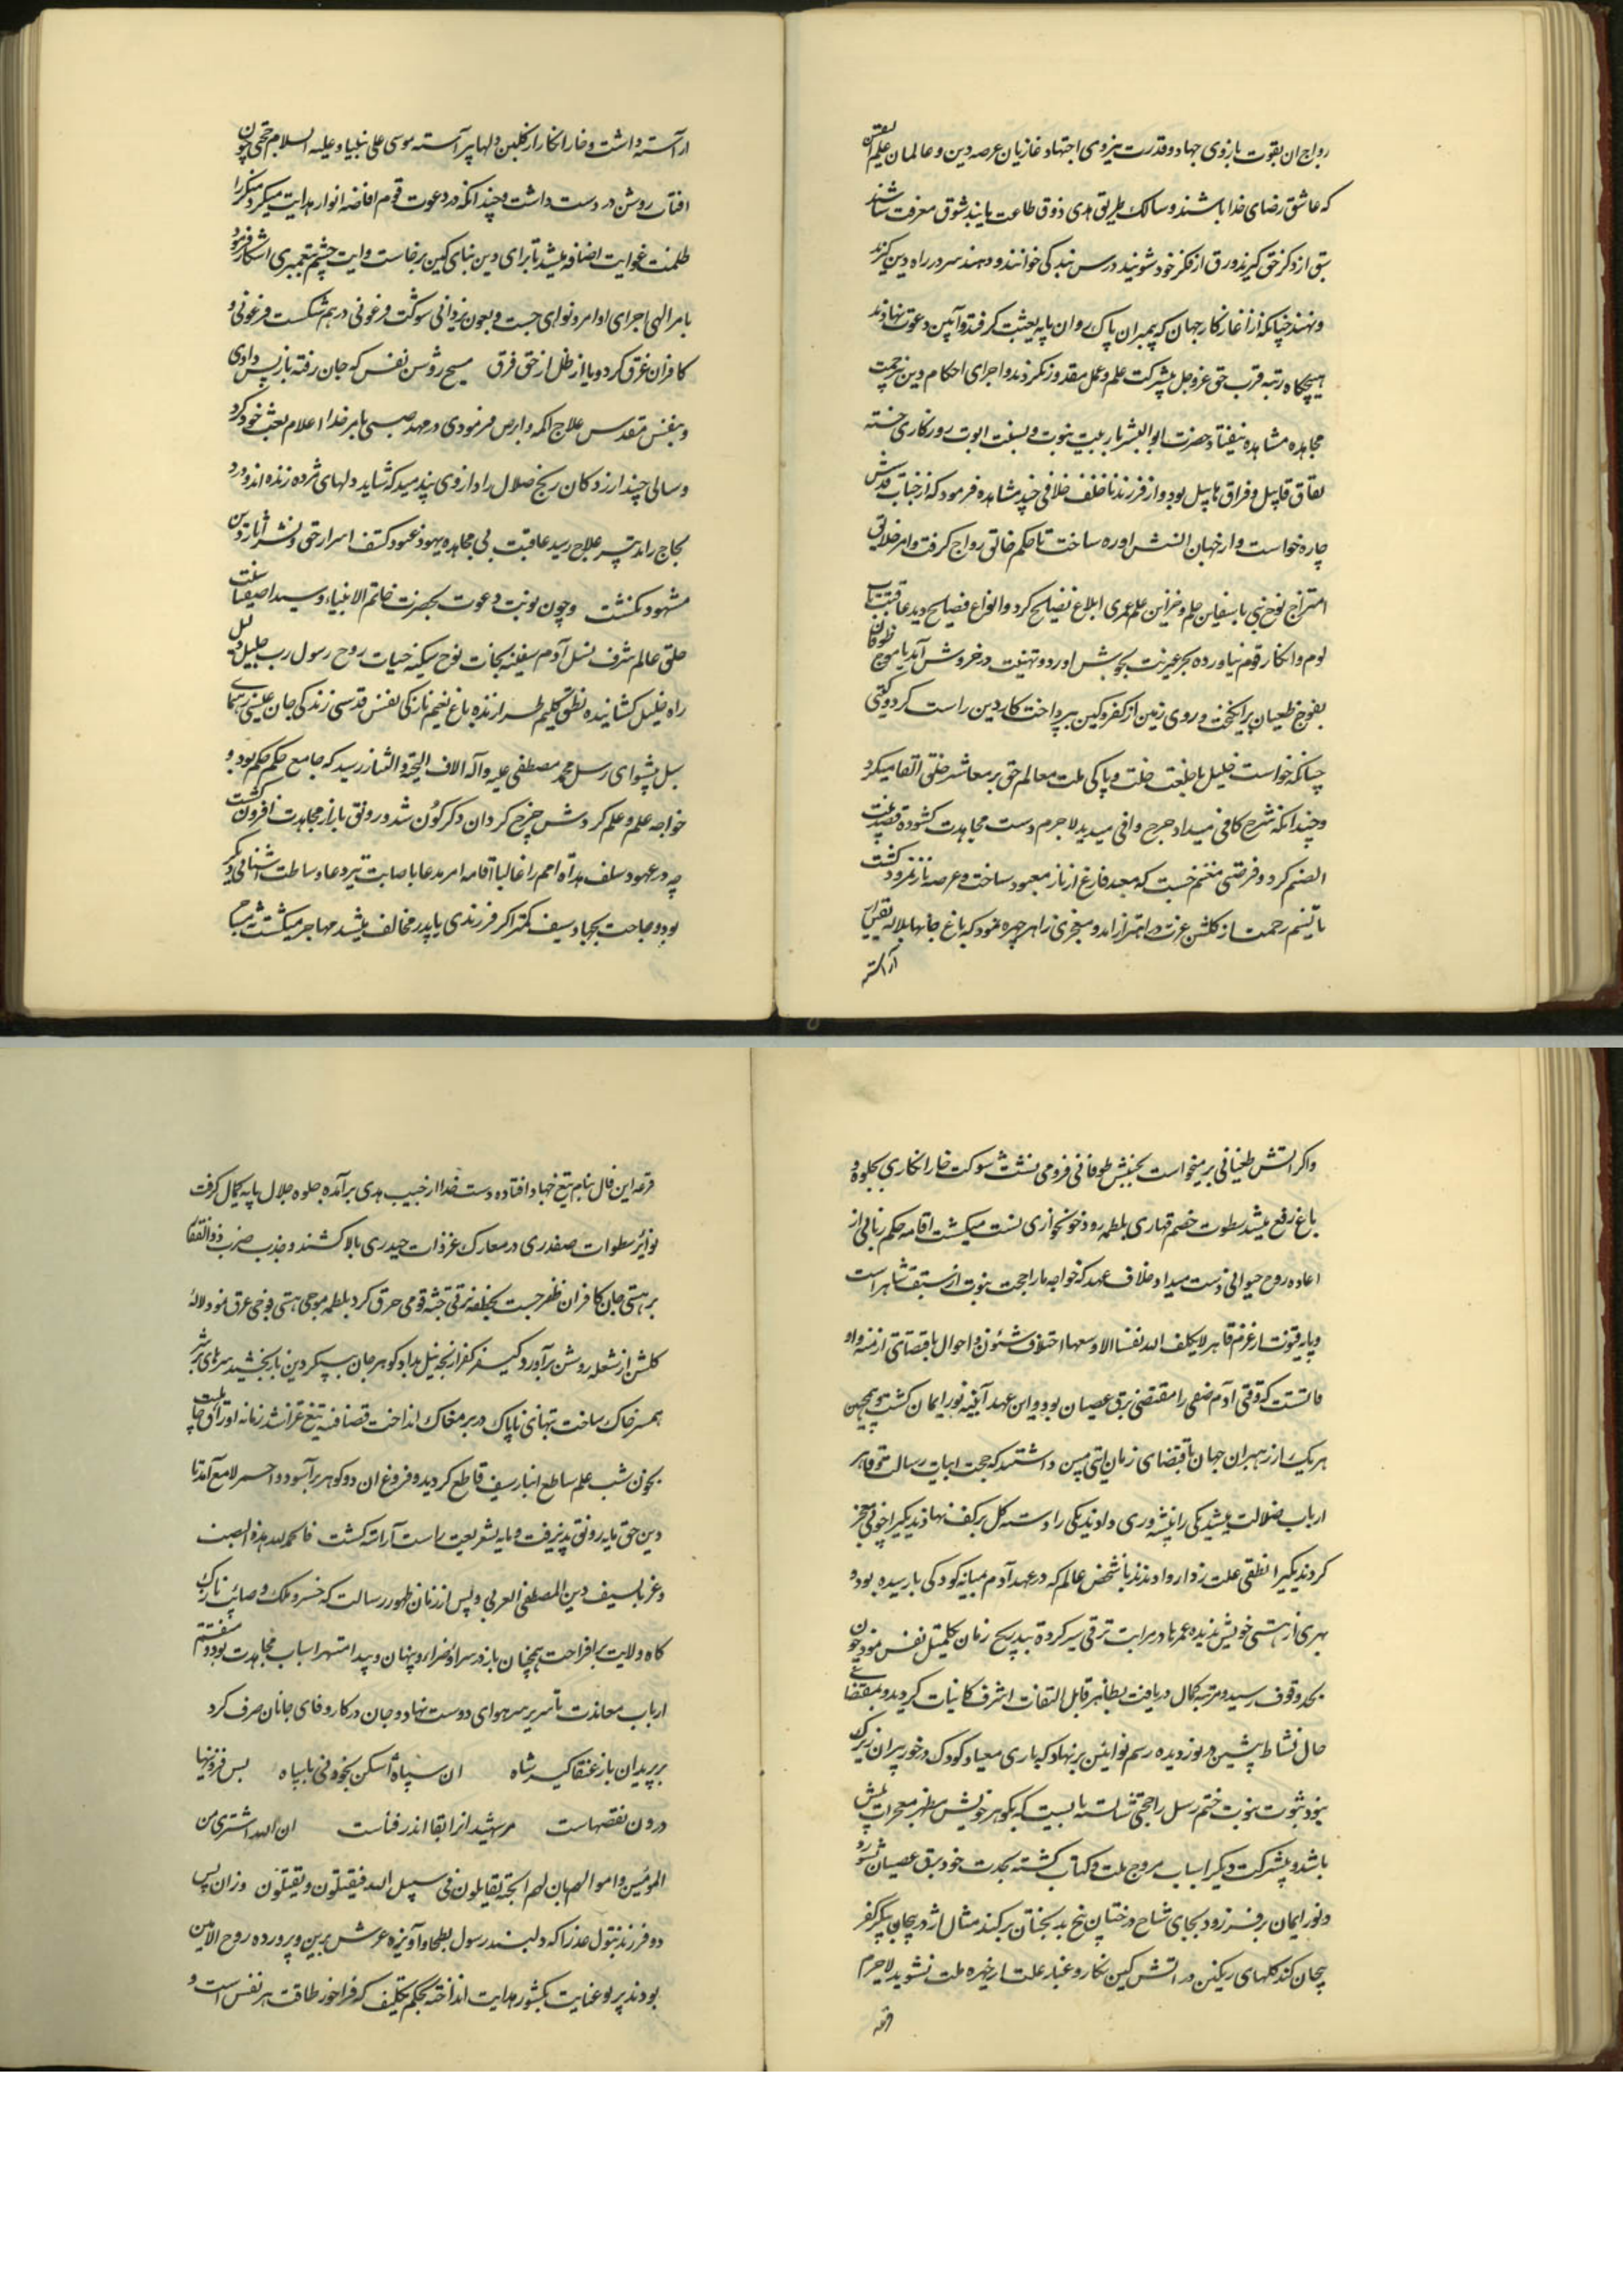 رواج ان بقوت بازوی جهاد و قدرت نیروی اجتهاد غازیان عرصه دین و عالمان علم الیقین
که عاشق رضای خدا باشند و سالک طریق هدی ذوق طاعت یابند شوق معرفت شناسند
سبق از ذکر حق گیرند ورق از فکر خود شویند درس بندگی خوانند و دهند سر در راه دین گیرند
و نهند چنانکه از اغاز کار جهان که پیمبران پاک روان پایه بعثت گرفتند و آیین دعوت نهادند
هیچگاه رتبه قرب حق عزوجل بی شرکت علم و عمل مقدور نکردند و اجرای احکام دین بی زحمت
مجاهده مشاهده نیفتاد حضرت ابوالبشر با ربیت نبوت و بسنت ابوت روزگاری خسته
نفاق قابیل و فراق هابیل بود و از فرزند ناخلف خلافی چند مشاهده فرمود که از جناب قدسش
چاره خواست و از جهان اتش اوره ساخت تا حکم خالق رواج گرفت و امر خلایق
امتزاج نوح نبی با سفاین حلم و خزاین علم عمری ابلاغ نصایح کرد و انواع فضایح دید عاقبت تاب
لوم و انکار قوم نیاورده بحر غیرت بجوش اورد و تهنیت در خروش آمد با موج طوفان
بفوج طغیان برانگیخت و روی زمین از کفر و کین بپرداخت کار دین راست کرد و گیتی
چنانکه خواست خلیل با طلعت خلت و پاکی ملت معالم حق بر معاشر خلق القا میکرد
و چندانکه شرح کافی میداد جرح وافی میدید لاجرم دست مجاهدت کشوده قصد بیت
الصنم کرد و فرصتی مغتنم جست که معبد فارغ از ناز معبود ساخت و عرصه ناز نمرود گشت
تا نسیم رحمت از گلشن عزت در اهتزاز امد و معجزی زاهر چهره نمود که باغ جانها بلاله یقین
آراسته
اراسته داشت و خار انکار از گلبن دلها پیراسته موسی علی نبینا و علیه السلام حجتی چون
افتاب روشن در دست داشت و چندانکه در دعوت قوم افاضه انوار هدایت میکرد منکر را
ظلمت غوایت اضافه میشد تا برای دین بنای کین برخاست و ایت خشم پیغمبری اشکار فرمود
بامر الهی اجرای اوامر و نواهی جست و بعون یزدانی شوکت فرعونی درهم شکست فرعونی و
کافران غرق کرد و با از ظل از حق فرق مسیح روشن نفس که جان رفته باز پس دادی
و بنفس مقدس علاج اکمه و ابرص فرمودی در مهد صبی بامر خدا اعلام بعثت خود کرد
و سالی چند ازردگان رنج ضلال را داروی پند میداد که شاید دلهای مرده زنده اندورد
لجاج راند تیسر علاج رسید عاقبت بی مجاهده یهود عنود کشف اسرار حق و نشر آثار دین
مشهود نگشت و چون نوبت دعوت بحضرت خاتم الانبیاء و سید اصفیا
خلق عالم شرف نسل آدم سفینه نجات نوح سکینه حیات روح رسول رب جلیل
راه خلیل گشاینده نطق کلیم طرازنده باغ نعیم تازگی نفس قدسی زندگی جان عیسی رهنمای
سبل پیشوای رسل محمد مصطفی علیه و آله الاف التحیة و الثنا رسید که جامع حکم حکم بود و
خواجه علم و علم گردش چرخ گردان دگرگون شد و رونق بازار مجاهدت افزون گشت
چه در عهود سلف هداة امم را غالبا اقامه امر مدعا باصابت تیر دعا وساطت اشنائی دیگر
بود و حاجت بجهاد و سیف کمتر اگر فرزندی با پدر مخالف میشد مهاجر میگشت
واگر اتش طغیانی برمیخواست بجنبش طوفانی فرومی نشست شوکت خار انکاری بجلوه
باغ رفع میشد سطوت خصم قهاری بلطمه رود خونخواری نیست میگشت اقامه حکم ربانی از
اعاده روح حیوانی دست میداد خلاف عهد که خواجه ما را حجت نبوت از سبقت شاهر است
و پایه فتوت از عزم قاهر لایکلف الله نفسا الا وسعها اختلاف شئون و احوال باقتضای ازمنه و او
قاتست که وقتی آدم صفی را مقتضی برق عصیان بود و این عهد آیینه نور ایمان گشت و همچنین
هر یک از رهبران جهان باقتضای زمان ایتی مبین داشتند که حجت اثبات رسالت قاهر
ارباب ضلالت میشد یکی را بیشه وری دادند یکی را دسته گل برکف نهادند یکی را خونی معجز
کردند یکیرا نطقی علت زدا روا دادند تا شخص عالم که در عهد آدم میانه کودکی نارسیده بود و
بهری از هستی خویش ندیده عمرها در مراتب ترقی سیر کرده بتدریج زمان تکمیل نفس نمود چون
بحد وقوف رسید و مرتبه کمال دریافت بظاهر قابل التفات اشرف کاینات گردید و بمقتضای
حال نشاط پیشین درنوردیده رسم نوایین بر نهاد که بازی معیاد کودک در خور پیران زیرک
نبود ثبوت نبوت ختم رسل را حجتی شایسته بایست که بگوهر خویش مظهر معجزات پیش
باشد و بی شرکت دیگر اسباب مروج ملت و کتاب گشته بحدت خود برق عصیان شود
و نور ایمان برفروزد بجای شاخ درختان بیخ بدبختان برکند مثال اژدر پیچان پیکر کفر
پیچان کند گلهای رنگین در اتش کین نگارد و غبار علت از چهره ملت بشوید لاجرم
قرعه
قرعه این فال بنام تیغ جهاد افتاده دست خدا از جیب هدی برآمده جلوه جلال پایه کمال گرفت
نوائر سطوات صفدری در معارک غزوات حیدری بالا کشند و جذب ضرب ذوالفقار
بر هستی جان کافران ظفر جست بخطفه برقی جثه قومی حرق کرد بلطمه موجی هستی فوجی غرق نمود لاله
گلشن از شعله روشن برآورد و کیفر کفر از نیل بداد گوهر جان به پیکر دین باز بخشید سرهای پر شر
همسر خاک ساخت بتهای ناپاک در بر مغاک انداخت قضا فتنه تیغ غزا شد زمانه اوراق ملت
بخون شب علم ساطع انبار سیف قاطع گردید و فروغ ان دو گوهر برآسود و احمر لامع آمد تا
دین حق پایه رونق پذیرفت و مایه شریعت راست آراسته گشت فالحمدلله هذه
وعز بالسیف دین المصطفی العربی و پس از زمان ظهور رسالت که خسرو ملک وصایت تارک
گاه ولایت برافراخت همچنان باز در سراء و ضراء و پنهان و پیدا مشتهر اسباب مجاهدت بود و هم
ارباب معاندت تا سر بر سر هوای دوست نهاد و جان در کار وفای جانان صرف کرد
بر پریدان باز عنقاگیر شاه ان سپاه اشکن بخود نی با سپاه بس فزونیها
درون نقصهاست مر شهیدانرا بقا اندر فناست ان الله اشتری من
المومنین و اموالهم بان لهم الجنة یقاتلون فی سبیل الله فیقتلون و یقتلون وزان پس
دو فرزند بتول عذرا که دلبند رسول بطحا و آویزه عرش برین و پرورده روح الامین
بودند پرتو عنایت بکشور هدایت انداخته بحکم تکلیف که فراخور طاقت هر نفس است و